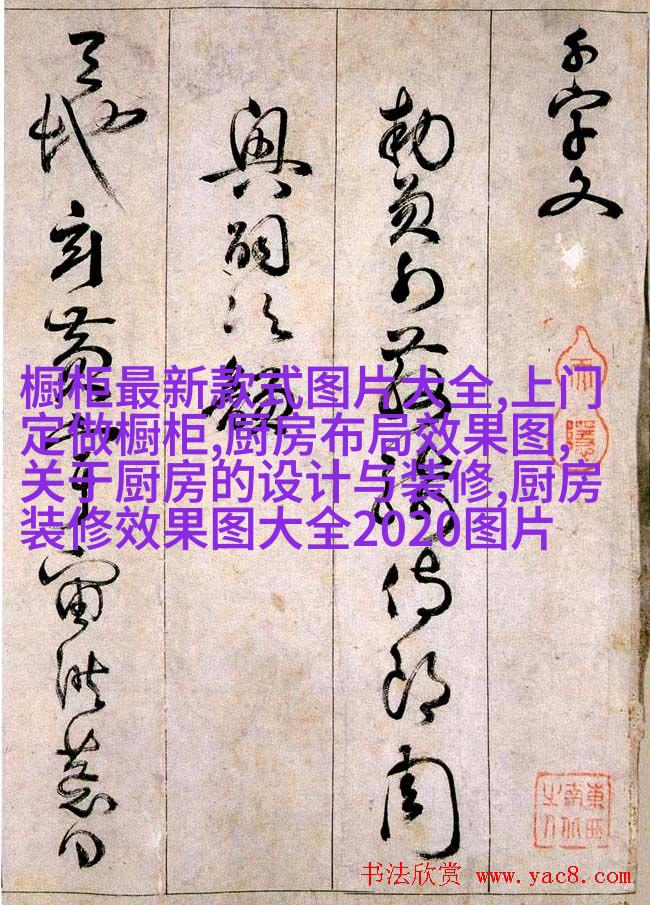 千字文
勅員外散騎侍郎周
興嗣次韻
天地玄黃宇宙洪荒日
橱柜最新款式图片大全,上门
定做橱柜,厨房布局效果图,
关于厨房的设计与装修,厨房
装修效果图大全2020图片
東西南北之人
书法欣赏 www.yac8.com